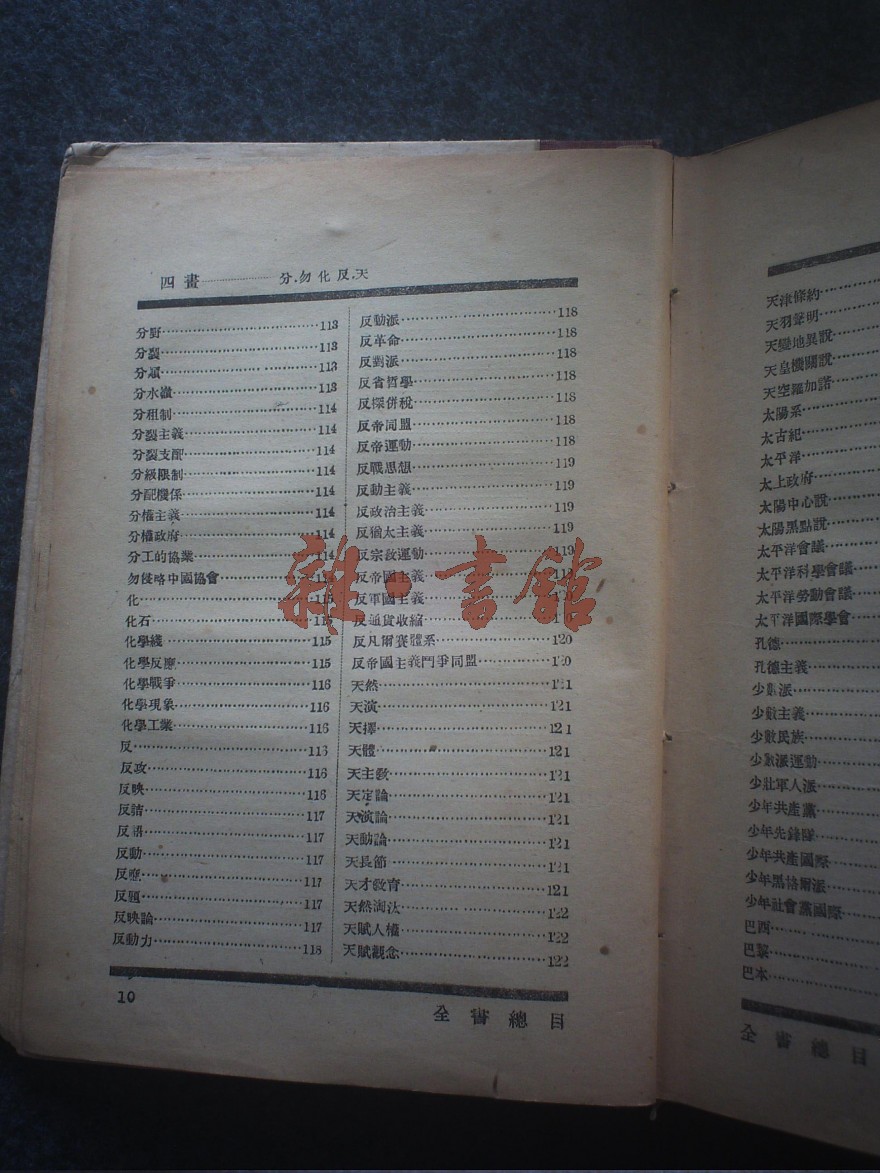 四畫…………分.勿化反.天
分野…………113
分裂…………113
分項…………113
分水嶺…………113
分租制…………114
分裂主義…………114
分裂支配…………114
分級限制…………114
分配機係…………114
分權主義…………114
分權政府…………114
分工的協業…………114
勿侵略中國協會…………
化…………115
化石…………115
化學綫…………115
化學反應…………115
化學戰爭…………116
化學現象…………116
化學工業…………116
反…………116
反攻…………116
反映…………116
反詰…………117
反語…………117
反動…………117
反應…………117
反題…………117
反映論…………117
反動力…………118
反動派…………118
反革命…………118
反對派…………118
反省哲學…………118
反探併稅…………118
反帝同盟…………118
反帝運動…………118
反戰思想…………119
反動主義…………119
反政治主義…………119
反猶太主義…………119
反宗敎運動…………119
反帝國主義…………119
反軍國主義…………
反通貨收縮…………
反凡爾賽體系…………120
反帝國主義鬥爭同盟…………120
天然…………121
天演…………121
天擇…………121
天體…………121
天主敎…………121
天定論…………121
天演論…………121
天動論…………121
天長節…………121
天才敎育…………121
天然淘汰…………122
天賦人權…………122
天賦觀念…………122
10
全書總目
天津條約…………
天羽聲明…………
天變地異說…………
天皇機關說…………
天空羅加諾…………
太陽系…………
太古紀…………
太平洋…………
太上政府…………
太陽中心說…………
太陽黑點說…………
太平洋會議…………
太平洋科學會議…………
太平洋勞動會議…………
太平洋國際學會…………
孔德…………
孔德主義…………
少數派…………
少數主義…………
少數民族…………
少數派運動…………
少壯軍人派…………
少年共產黨…………
少年先鋒隊…………
少年共產國際…………
少年黑格爾派…………
少年社會黨國際…………
巴西…………
巴黎…………
巴本…………
全書總目
雜書館